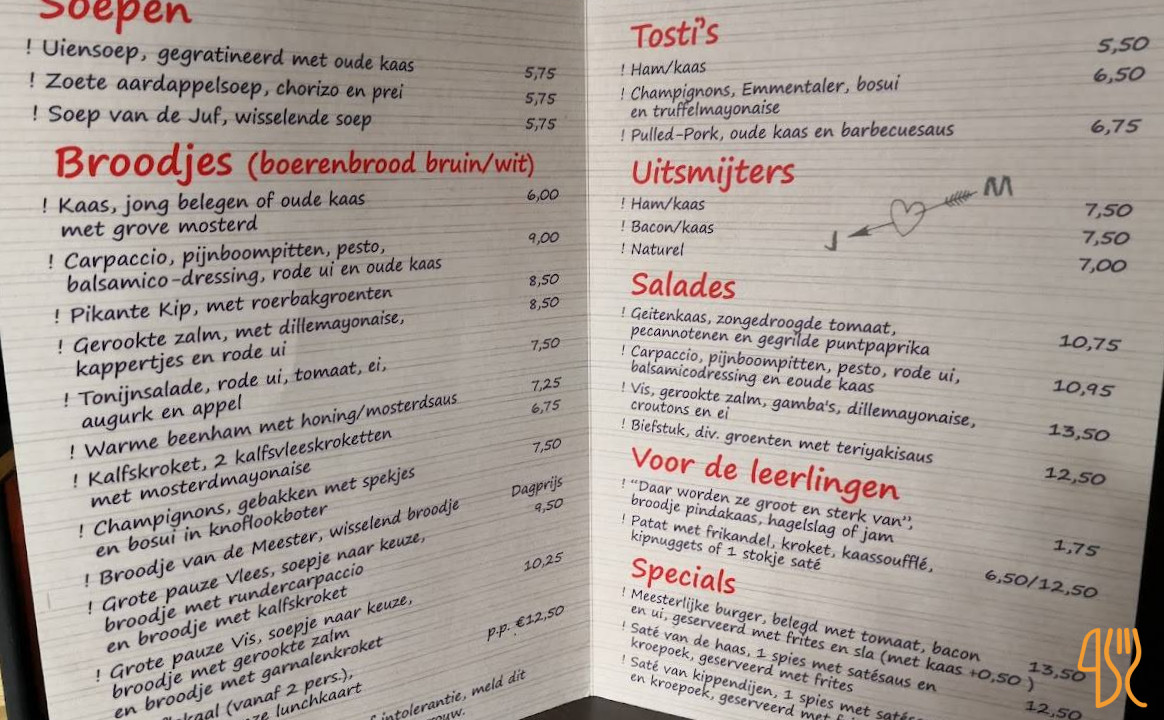 Soepen
! Uiensoep, gegratineerd met oude kaas 5,75
! Zoete aardappelsoep, chorizo en prei 5,75
! Soep van de Juf, wisselende soep 5,75
Broodjes (boerenbrood bruin/wit)
! Kaas, jong belegen of oude kaas 6,00
met grove mosterd
! Carpaccio, pijnboompitten, pesto, 9,00
balsamico-dressing, rode ui en oude kaas
! Pikante Kip, met roerbakgroenten 8,50
! Gerookte zalm, met dillemayonaise, 8,50
kappertjes en rode ui
! Tonijnsalade, rode ui, tomaat, ei, 7,50
augurk en appel
! Warme beenham met honing/mosterdsaus 7,25
! Kalfskroket, 2 kalfsvleeskroketten 6,75
met mosterdmayonaise
! Champignons, gebakken met spekjes 7,50
en bosui in knoflookboter
! Broodje van de Meester, wisselend broodje Dagprijs
! Grote pauze Vlees, soepje naar keuze, 9,50
broodje met rundercarpaccio
en broodje met kalfskroket
! Grote pauze Vis, soepje naar keuze, 10,25
broodje met gerookte zalm
en broodje met garnalenkroket
(vanaf 2 pers.), p.p. €12,50
lunchkaart
intolerantie, meld dit
Tosti's
! Ham/kaas 5,50
! Champignons, Emmentaler, bosui 6,50
en truffelmayonaise
! Pulled-Pork, oude kaas en barbecuesaus 6,75
Uitsmijters
! Ham/kaas 7,50
! Bacon/kaas 7,50
! Naturel 7,00
J M
Salades
! Geitenkaas, zongedroogde tomaat,
pecannotenen en gegrilde puntpaprika 10,75
! Carpaccio, pijnboompitten, pesto, rode ui,
balsamicodressing en eoude kaas 10,95
! Vis, gerookte zalm, gamba's, dillemayonaise,
croutons en ei 13,50
! Biefstuk, div. groenten met teriyakisaus 12,50
Voor de leerlingen
! "Daar worden ze groot en sterk van",
broodje pindakaas, hagelslag of jam 1,75
! Patat met frikandel, kroket, kaassoufflé,
kipnuggets of 1 stokje saté 6,50/12,50
Specials
! Meesterlijke burger, belegd met tomaat, bacon
en ui, geserveerd met frites en sla (met kaas +0,50 ) 13,50
! Saté van de haas, 1 spies met satésaus en
kroepoek, geserveerd met frites 12,50
! Saté van kippendijen, 1 spies met
en kroepoek, geserveerd met